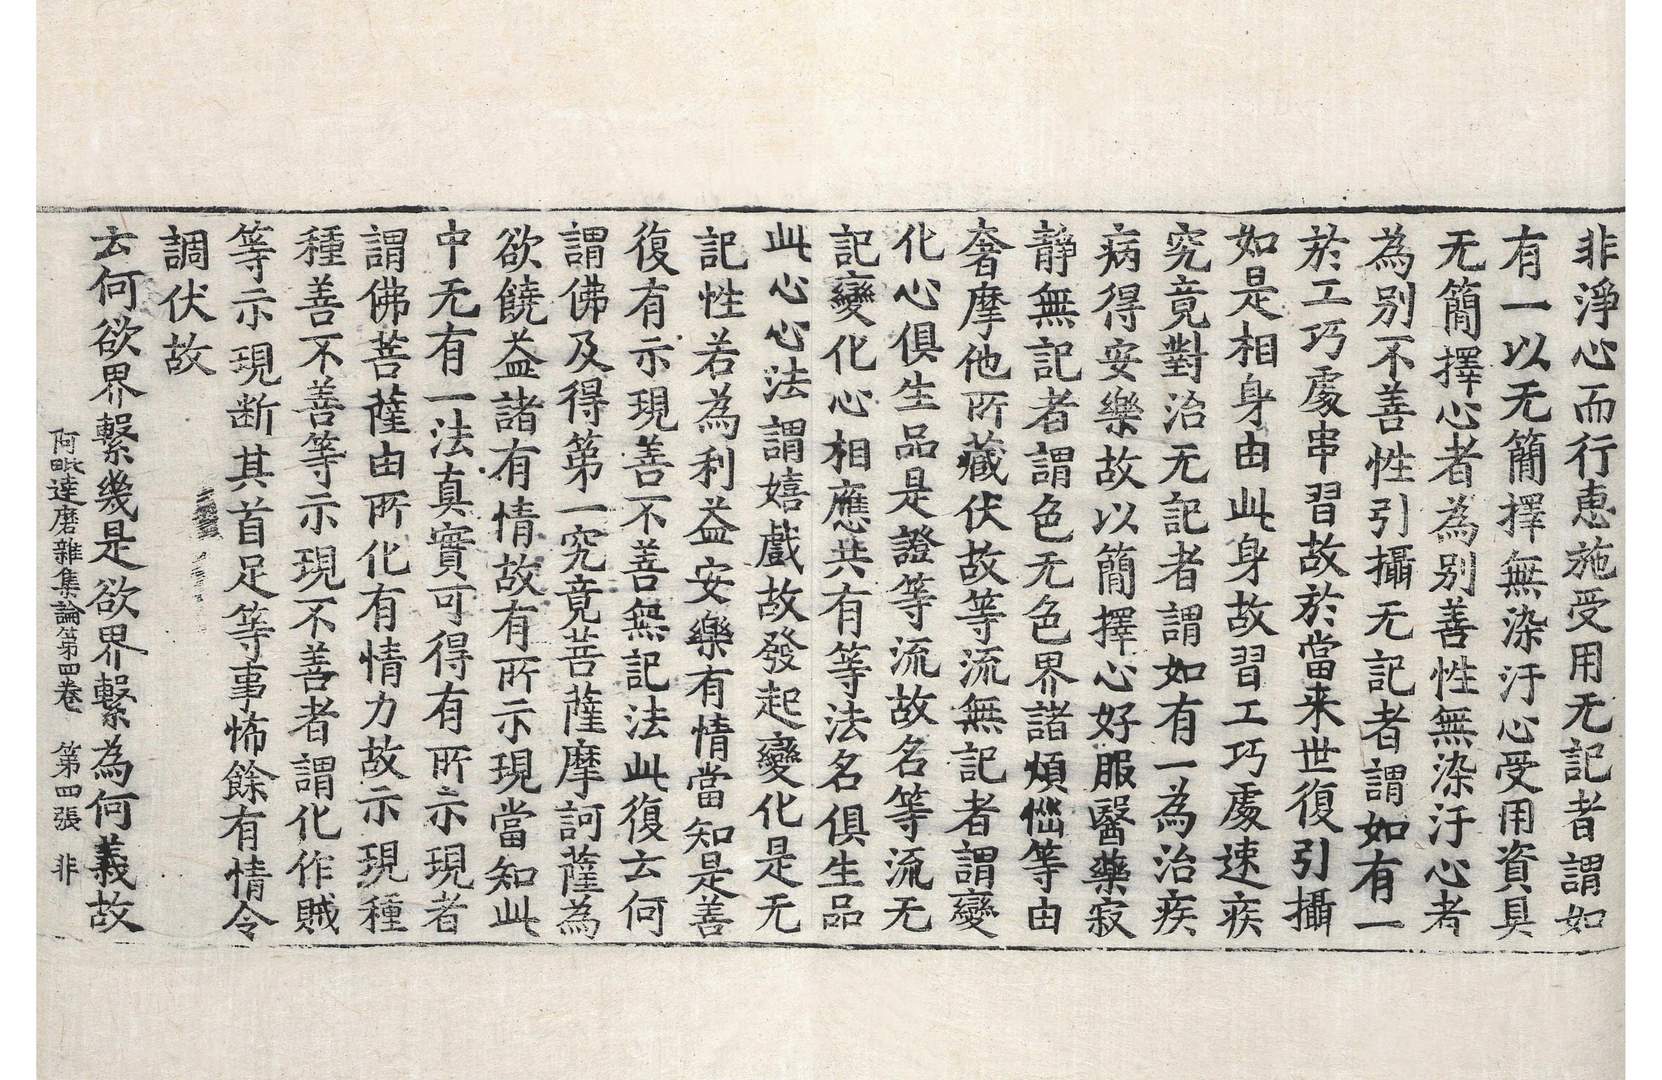 非淨心而行惠施受用无記者謂如
有一以无簡擇無染汙心受用資具
无簡擇心者為別善性無染汙心者
為別不善性引攝无記者謂如有一
於工巧處串習故於當来世復引攝
如是相身由此身故習工巧處速疾
究竟對治无記者謂如有一為治疾
病得安樂故以簡擇心好服醫藥寂
靜無記者謂色无色界諸煩惱等由
奢摩他所藏伏故等流無記者謂變
化心俱生品是證等流故名等流无
記變化心相應共有等法名俱生品
此心心法謂嬉戲故發起變化是无
記性若為利益安樂有情當知是善
復有示現善不善無記法此復云何
謂佛及得第一究竟菩薩摩訶薩為
欲饒益諸有情故有所示現當知此
中无有一法真實可得有所示現者
謂佛菩薩由所化有情力故示現種
種善不善等示現不善者謂化作賊
等示現断其首足等事怖餘有情令
調伏故
云何欲界繫幾是欲界繫為何義故
阿毗達磨雜集論第四卷 第四張 非